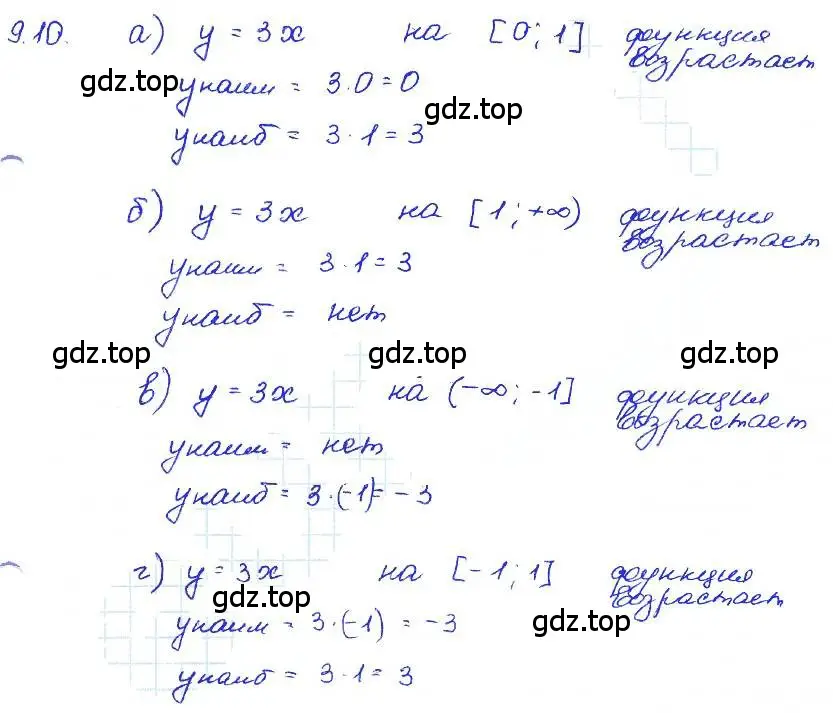 9.10. а) y = 3x на [0; 1] функция возрастает
gdz.top yнаим = 3·0=0 gdz.top
yнаиб = 3·1=3
б) y = 3x на [1; +∞) функция возрастает
yнаим = 3·1=3
yнаиб = нет
gdz.top gdz.top gdz.top
в) y = 3x на (-∞; -1] функция возрастает
yнаим = нет
yнаиб = 3·(-1)= -3
г) y = 3x на [-1; 1] функция возрастает
gdz.top
yнаим = 3·(-1) = -3 gdz.top
yнаиб = 3·1= 3